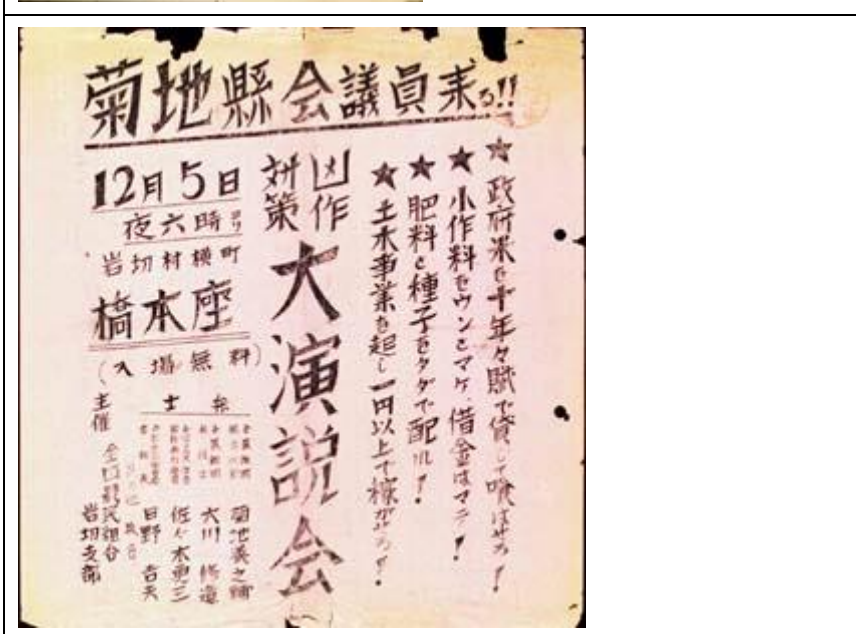 菊地縣会議員来る!!
★政府米を十年々賦で貸して喰はせろ!
★小作料をウンとマケ、借金はマテ!
★肥料と種子をタダで配れ!
★土木事業を起し一円以上で稼がせろ!
凶作
対策
大演説会
12月5日
夜六時ヨリ
岩切村横町
橋本座
(入場無料)
弁士
菊地養之輔
大川修造
佐々木更三
日野吉夫
主催
岩切支部